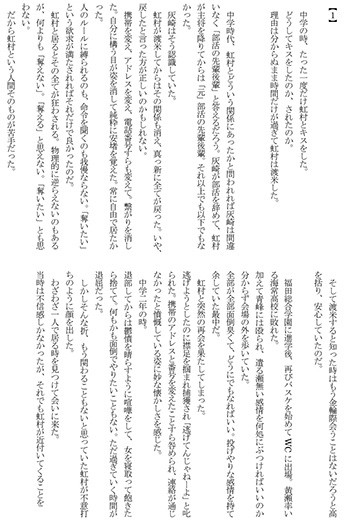 【１】
中学の時、たった一度だけ虹村とキスをした。
どうしてキスをしたのか、されたのか。
理由は分からぬまま時間だけが過ぎて虹村は渡米した。
中学時代、虹村とどういう関係にあったかと問われれば灰崎は間違
いなく「部活の先輩後輩」と答えるだろう。灰崎が部活を辞めて、虹村
が主将を降りてからは「元・部活の先輩後輩」それ以上でも以下でもな
かった。
灰崎はそう認識していた。
虹村が渡米してからはその関係も消え、真っ新に全てが戻った。いや、
戻したと言った方が正しいのかもしれない。
携帯のメールアドレスを変え、電話番号すらも変えて、繋がりを消し
た。自分に構う目が姿を消して純粋に安堵を覚えた。常に自由で居たか
った。
人のルールに縛られるのも、命令を聞くのも我慢ならない。「奪いたい」
という欲求が満たされればそれだけで良かったのだ。
虹村と居るとその全てが狂わされる。物理的に逆らえないのもある
が、何よりも「奪えない」。「奪える」と思えない。「奪いたい」とも思
わない。
だから虹村という人間そのものが苦手だった。
そして渡米すると知った時はもう金輪際会うことはないだろうと高
を括り、安心していたのだ。
福田総合学園に進学後、再びバスケを始めてＷＣに出場。黄瀬率い
る海常高校に敗れた。
加えて青峰には殴られ、遣る瀬無い感情を何処にぶつければいいのか
分からず会場の外を歩いていた。
全部が全部面倒臭くて、どうにでもなればいい、投げやりな感情を持て
余していた最中だ。
虹村と突然の再会を果たしてしまった。
逃げようとしたのに襟足を掴まれ捕獲され「逃げてんじゃねーよ」と叱
られた。携帯のアドレスと番号を変えたことすら咎められ、連絡が通じ
なかったと憤慨している姿に妙な懐かしさを感じた。
中学二年の時。
退部してからは鬱憤を晴らすように喧嘩をして、女を寝取って飽きた
ら捨てて。何もかも面倒でやりたいこともない。ただ過ぎていく時間が
退屈だった。
しかしそんな折、もう関わることもないと思っていた虹村が不意打
ちのように顔を出した。
わざわざ一人で居る時を見つけて会いに来た。
当時は不信感しかなかったが、それでも虹村が近付いてくることを